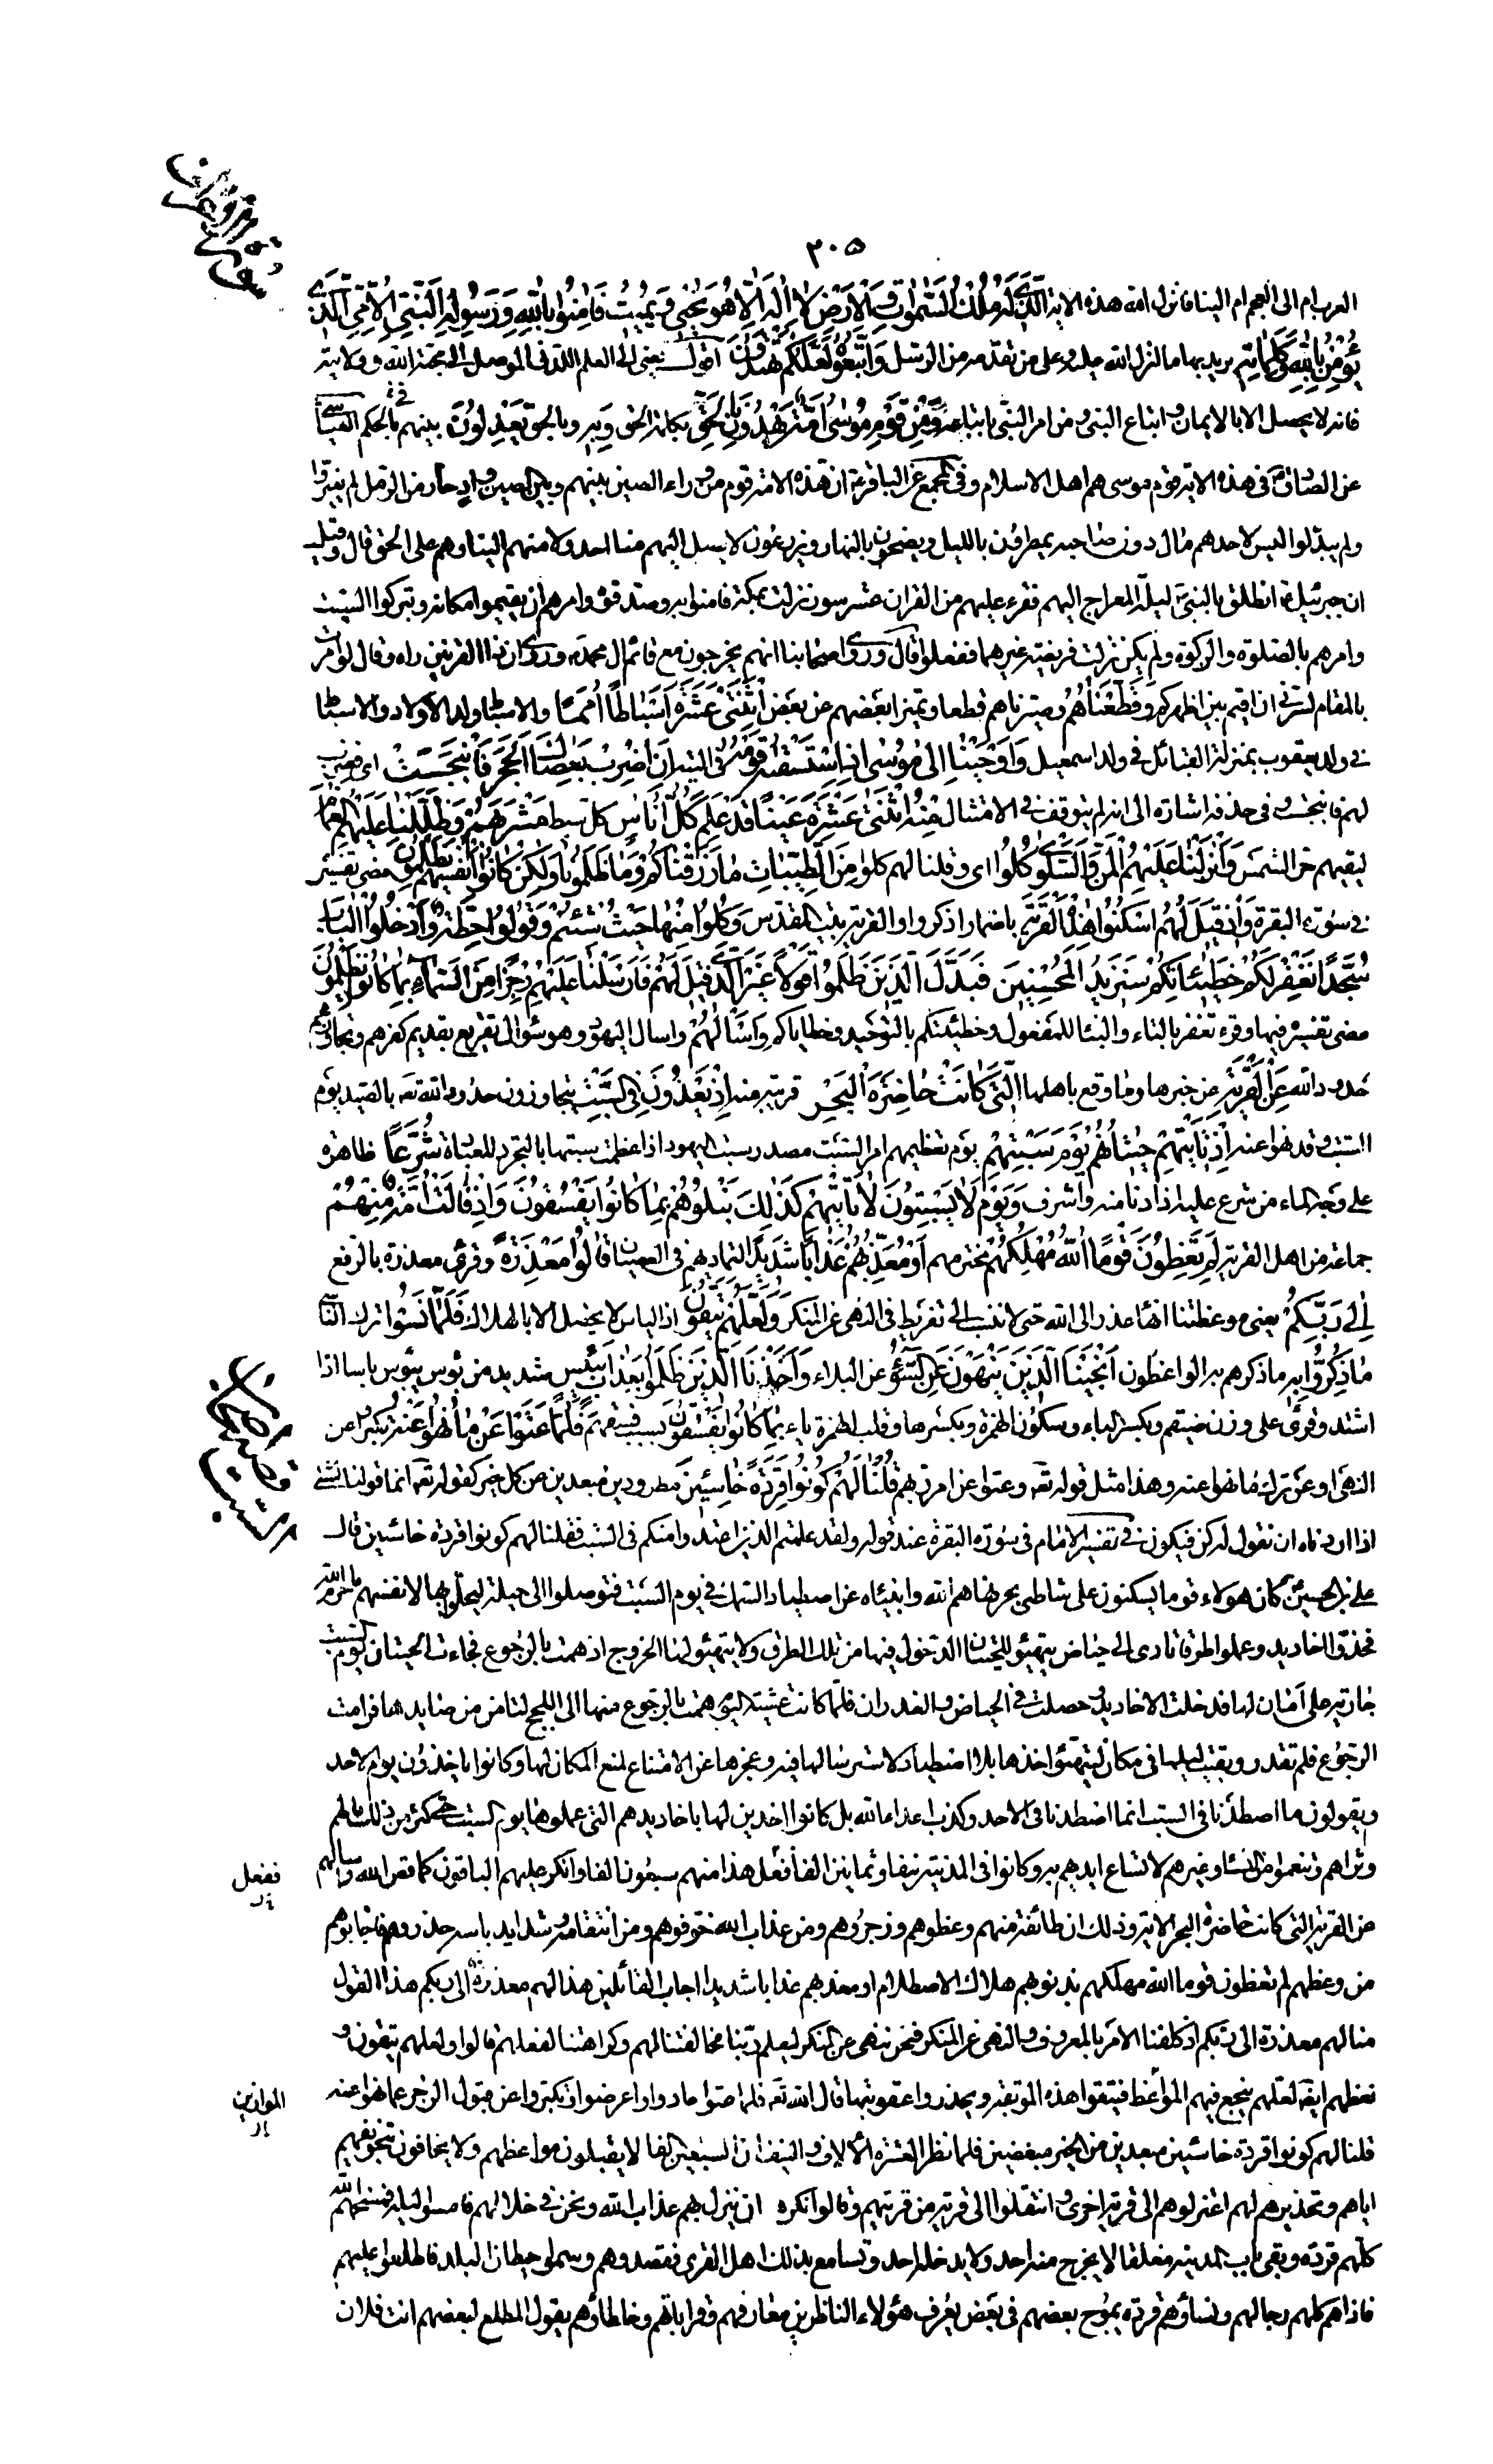 ٢٠٥
العرب ام الى العجم ام الينا فانزل الله هذه الاية الَّذِي لَهُ مُلْكُ السَّمٰوٰاتِ وَالْاَرْضِ لٰا اِلٰهَ اِلّٰا هُوَ يُحْيِي وَيُمِيتُ فَاٰمِنُوا بِاللّٰهِ وَرَسُولِهِ النَّبِيِّ الْاُمِّيِّ الَّذِي
يُؤْمِنُ بِاللّٰهِ وَكَلِمٰاتِهِ يريد بها ما انزل الله عليه وعلى من تقدمه من الرسل وَاتَّبِعُوهُ لَعَلَّكُمْ تَهْتَدُونَ اقول يعني الى العلم اللدني الموصل الى محبة الله وولايته
فانه لا يحصل الا بالايمان واتباع النبي ومن امر النبي باتباعه وَمِنْ قَوْمِ مُوسٰى اُمَّةٌ يَهْدُونَ بِالْحَقِّ بكلمة الحق وَبِهِ وبالحق يَعْدِلُونَ بينهم في الحكم العياشي
عن الصادق في هذه الاية قوم موسى هم اهل الاسلام وفي المجمع عن الباقر ان هذه الامة قوم من وراء الصين بينهم وبين الصين واد حار من الرمل لم يغيروا
ولم يبدلوا ليس لاحدهم مال دون صاحبه يمطرون بالليل ويضحون بالنهار ويزرعون لا يصل اليهم منا احد ولا منهم الينا وهم على الحق قال وقيل
ان جبرئيل انطلق بالنبي ليلة المعراج اليهم فقرء عليهم من القران عشر سور نزلت بمكة فامنوا به وصدقوه وامرهم ان يقيموا مكانهم ويتركوا السبت
وامرهم بالصلوة والزكوة ولم يكن نزلت فريضة غيرهما ففعلوا قال وروى اصحابنا انهم يخرجون مع قائم ال محمد وروى ان ذا القرنين راه وقال لو امرت
بالمقام لسرني ان اقيم بين اظهركم وَقَطَّعْنٰاهُمُ وصيرناهم قطعا وتميزا بعضهم عن بعض اثْنَتَيْ عَشْرَةَ اَسْبٰاطًا اُمَمًا والاسباط ولد الاولاد والاسباط
في ولد يعقوب بمنزلة القبائل في ولد اسمعيل وَاَوْحَيْنٰا اِلٰى مُوسٰى اِذِ اسْتَسْقٰيهُ قَوْمُهُ في التيه اَنِ اضْرِبْ بِعَصٰاكَ الْحَجَرَ فَانْبَجَسَتْ اي فضرب
لهم فانبجست وفي حذفه اشارة الى انه لم يتوقف في الامتثال مِنْهُ اثْنَتٰا عَشْرَةَ عَيْنًا قَدْ عَلِمَ كُلُّ اُنٰاسٍ كل سبط مَشْرَبَهُمْ وَظَلَّلْنٰا عَلَيْهِمُ الْغَمٰامَ
ليقيهم حر الشمس وَاَنْزَلْنٰا عَلَيْهِمُ الْمَنَّ وَالسَّلْوٰى كُلُوا اي وقلنا لهم كلوا مِنْ طَيِّبٰاتِ مٰا رَزَقْنٰاكُمْ وَمٰا ظَلَمُونٰا وَلٰكِنْ كٰانُوا اَنْفُسَهُمْ يَظْلِمُونَ مضى تفسيره
في سورة البقرة وَاِذْ قِيلَ لَهُمُ اسْكُنُوا هٰذِهِ الْقَرْيَةَ باضمار اذكروا والقرية بيت المقدس وَكُلُوا مِنْهٰا حَيْثُ شِئْتُمْ وَقُولُوا حِطَّةٌ وَادْخُلُوا الْبٰابَ
سُجَّدًا نَغْفِرْ لَكُمْ خَطِيئٰاتِكُمْ سَنَزِيدُ الْمُحْسِنِينَ فَبَدَّلَ الَّذِينَ ظَلَمُوا قَوْلًا غَيْرَ الَّذِي قِيلَ لَهُمْ فَاَرْسَلْنٰا عَلَيْهِمْ رِجْزًا مِنَ السَّمٰاءِ بِمٰا كٰانُوا يَظْلِمُونَ
مضى تفسيره فيها وقرء تغفر بالتاء والبناء للمفعول وخطيئتكم بالتوحيد وخطاياكم وَاسْئَلْهُمْ واسال اليهود وهو سؤال تقريع بقديم كفرهم وتجاوزهم
حدود الله عَنِ الْقَرْيَةِ عن خبرها وما وقع باهلها الَّتِي كٰانَتْ حٰاضِرَةَ الْبَحْرِ قريبة منه اِذْ يَعْدُونَ فِي السَّبْتِ يتجاوزون حدود الله تعه بالصيد يوم
السبت وقد نهوا عنه اِذْ تَأْتِيهِمْ حِيتٰانُهُمْ يَوْمَ سَبْتِهِمْ يوم تعظيمهم امر السبت مصدر سبت اليهود اذا عظمت سبتها بالتجرد للعبادة شُرَّعًا ظاهرة
على وجه الماء من شرع عليه اذا دنا منه واشرف وَيَوْمَ لٰا يَسْبِتُونَ لٰا تَأْتِيهِمْ كَذٰلِكَ نَبْلُوهُمْ بِمٰا كٰانُوا يَفْسُقُونَ وَاِذْ قٰالَتْ اُمَّةٌ مِنْهُمْ
جماعة من اهل القرية لِمَ تَعِظُونَ قَوْمًا اللّٰهُ مُهْلِكُهُمْ مخترمهم اَوْ مُعَذِّبُهُمْ عَذٰابًا شَدِيدًا لتماديهم في العصيان قٰالُوا مَعْذِرَةً وقرئ معذرة بالرفع
اِلٰى رَبِّكُمْ يعني موعظتنا انهاء عذر الى الله حتى لا ننسب الى تفريط في النهي عن المنكر وَلَعَلَّهُمْ يَتَّقُونَ اذ الياس لا يحصل الا بالهلاك فَلَمّٰا نَسُوا ترك الناسي
مٰا ذُكِّرُوا بِهِ ما ذكرهم به الواعظون اَنْجَيْنَا الَّذِينَ يَنْهَوْنَ عَنِ السُّوءِ عن البلاء وَاَخَذْنَا الَّذِينَ ظَلَمُوا بِعَذٰابٍ بَئِيسٍ شديد من بؤس يبؤس باسا اذا
اشتد وقرئ على وزن ضيقم وبكسر الباء وسكون الهمزة وبكسرها وقلب الهمزة ياء بِمٰا كٰانُوا يَفْسُقُونَ بسبب فسقهم فَلَمّٰا عَتَوْا عَنْ مٰا نُهُوا عَنْهُ تكبروا عن
النهي او عن ترك ما نهوا عنه وهذا مثل قوله تعه وعتوا عن امر ربهم قُلْنٰا لَهُمْ كُونُوا قِرَدَةً خٰاسِئِينَ مطرودين مبعدين من كل خير كقوله تعه انما قولنا لشئ
اذا اردناه ان نقول له كن فيكون في تفسير الامام في سورة البقرة عند قوله ولقد علمتم الذين اعتدوا منكم في السبت فقلنا لهم كونوا قردة خاسئين قال
علي بن الحسين كان هولاء قوما يسكنون على شاطئ بحر نهاهم الله وانبياه عن اصطياد السمك في يوم السبت فتوصلوا الى حيلة ليحلوا بها لانفسهم ما حرم الله
فخدوا اخاديد وعملوا طرقا تادى الى حياض يتهيئو للحيتان الدخول فيها من تلك الطرق ولا يتهيئو لها الخروج اذ همت بالرجوع فجاءت الحيتان يوم السبت
جارية على امان لها فدخلت الاخاديد وحصلت في الحياض والغدران فلما كانت عشية اليوم همت بالرجوع منها الى اللجج لتامن من صايدها فرامت
الرجوع فلم تقدر وبقيت ليلها في مكان ليتهيئو اخذها بلا اصطياد لاسترسالها فيه وعجزها عن الامتناع لمنع المكان لها وكانوا ياخذون يوم الاحد
ويقولون ما اصطدنا في السبت انما اصطدنا في الاحد وكذب اعداء الله بل كانوا اخذين لها باخاديدهم التي عملوها يوم السبت حتى كثر من ذلك مالهم
وثراهم وتنعموا من النساء وغيرهم لاتساع ايديهم به وكانوا في المدينة نيفا وثمانين الفا فعل هذا منهم سبعون الفا وانكر عليهم الباقون كما قص الله واسالهم
عن القرية التي كانت حاضرة البحر الاية وذلك ان طائفة منهم وعظوهم وزجروهم ومن عذاب الله خوفوهم ومن انتقامه وشدايد باسه حذروهم فاجابوهم
من وعظهم لم تعظون قوما الله مهلكهم بذنوبهم هلاك الاصطلام او معذبهم عذابا شديدا اجاب القائلين هذا لهم معذرة الى ربكم هذا القول
منا لهم معذرة الى ربكم اذ كلفنا الامر بالمعروف والنهي عن المنكر فنحن ننهى عن المنكر ليعلم ربنا مخالفتنا لهم وكراهتنا لفعلهم قالوا ولعلهم يتقون و
نعظهم ايضه لعلهم ينجع فيهم المواعظ فيتقوا هذه الموبقة ويحذروا عقوبتها قال الله تعه فلما عتوا حادوا واعرضوا وتكبروا عن قبول الزجر عما نهوا عنه
قلنا لهم كونوا قردة خاسئين مبعدين من الخير مبغضين فلما نظر العشرة الالاف والنيف ان السبعين الفا لا يقبلون مواعظهم ولا يخافون بتخويفهم
اياهم وتحذيرهم لهم اعتزلوهم الى قرية اخرى وانتقلوا الى قرية من قريتهم وقالوا نكره ان ينزل بهم عذاب الله ونحن في خلالهم فامسوا ليلة فمسخهم الله
كلهم قردة وبقي باب المدينة مغلقا لا يخرج منه احد ولا يدخله احد وتسامع بذلك اهل القرى فقصدوهم وسموا حيطان البلد فاطلعوا عليهم
فاذا هم كلهم رجالهم ونساؤهم قردة يموج بعضهم في بعض يعرف هؤلاء الناظرين معارفهم وقراباتهم وخلطاؤهم يقول المطلع لبعضهم انت فلان
قصة اصحاب السبت
ففعل